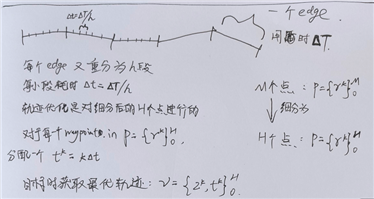 Δt=ΔT/h
一个 edge.
用时 ΔT.
每个 edge 又重分为 h段
每小段耗时 Δt = ΔT/h
轨迹优化是对细分后的H个点进行的
对于每个 waypoints in P={r^k}_0^H,
分配一个 t^k = kΔt
M个点: P={r^k}_0^M
细分为
H个点: P={r^k}_0^H
时将时获取最优轨迹: v={z^k, t^k}_0^H.